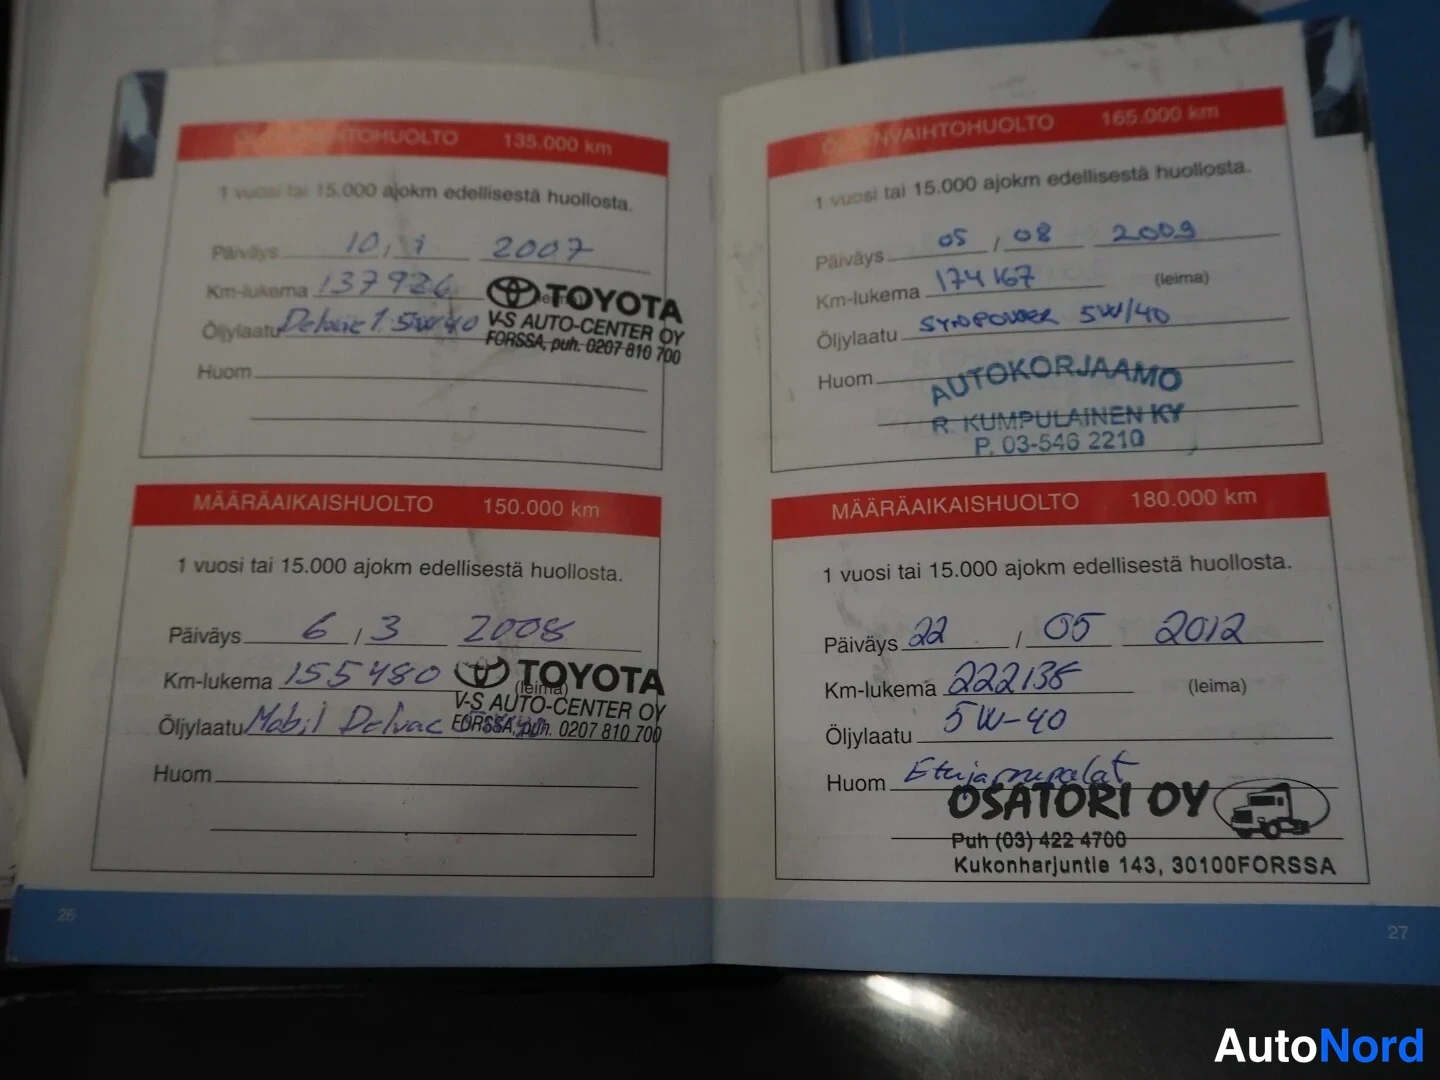 ÖLJYNVAIHTOHUOLTO 135.000 km
1 vuosi tai 15.000 ajokm edellisestä huollosta.
Päiväys 10, 1 2007
Km-lukema 137926 (leima)
Öljylaatu Delvac 1. 5W40
TOYOTA
V-S AUTO-CENTER OY
FORSSA, puh. 0207 810 700
Huom
MÄÄRÄAIKAISHUOLTO 150.000 km
1 vuosi tai 15.000 ajokm edellisestä huollosta.
Päiväys 6 / 3 2008
Km-lukema 155480 (leima)
Öljylaatu Mobil Delvac 5W40
TOYOTA
V-S AUTO-CENTER OY
FORSSA, puh. 0207 810 700
Huom
26
ÖLJYNVAIHTOHUOLTO 165.000 km
1 vuosi tai 15.000 ajokm edellisestä huollosta.
Päiväys 05 / 08 2009
Km-lukema 174167 (leima)
Öljylaatu SYNPOWER 5W/40
Huom
AUTOKORJAAMO
R. KUMPULAINEN KY
P. 03-546 2210
MÄÄRÄAIKAISHUOLTO 180.000 km
1 vuosi tai 15.000 ajokm edellisestä huollosta.
Päiväys 22 / 05 2012
Km-lukema 222138 (leima)
Öljylaatu 5W-40
Huom Etujarrupalat
OSATORI OY
Puh (03) 422 4700
Kukonharjuntie 143, 30100FORSSA
27
AutoNord